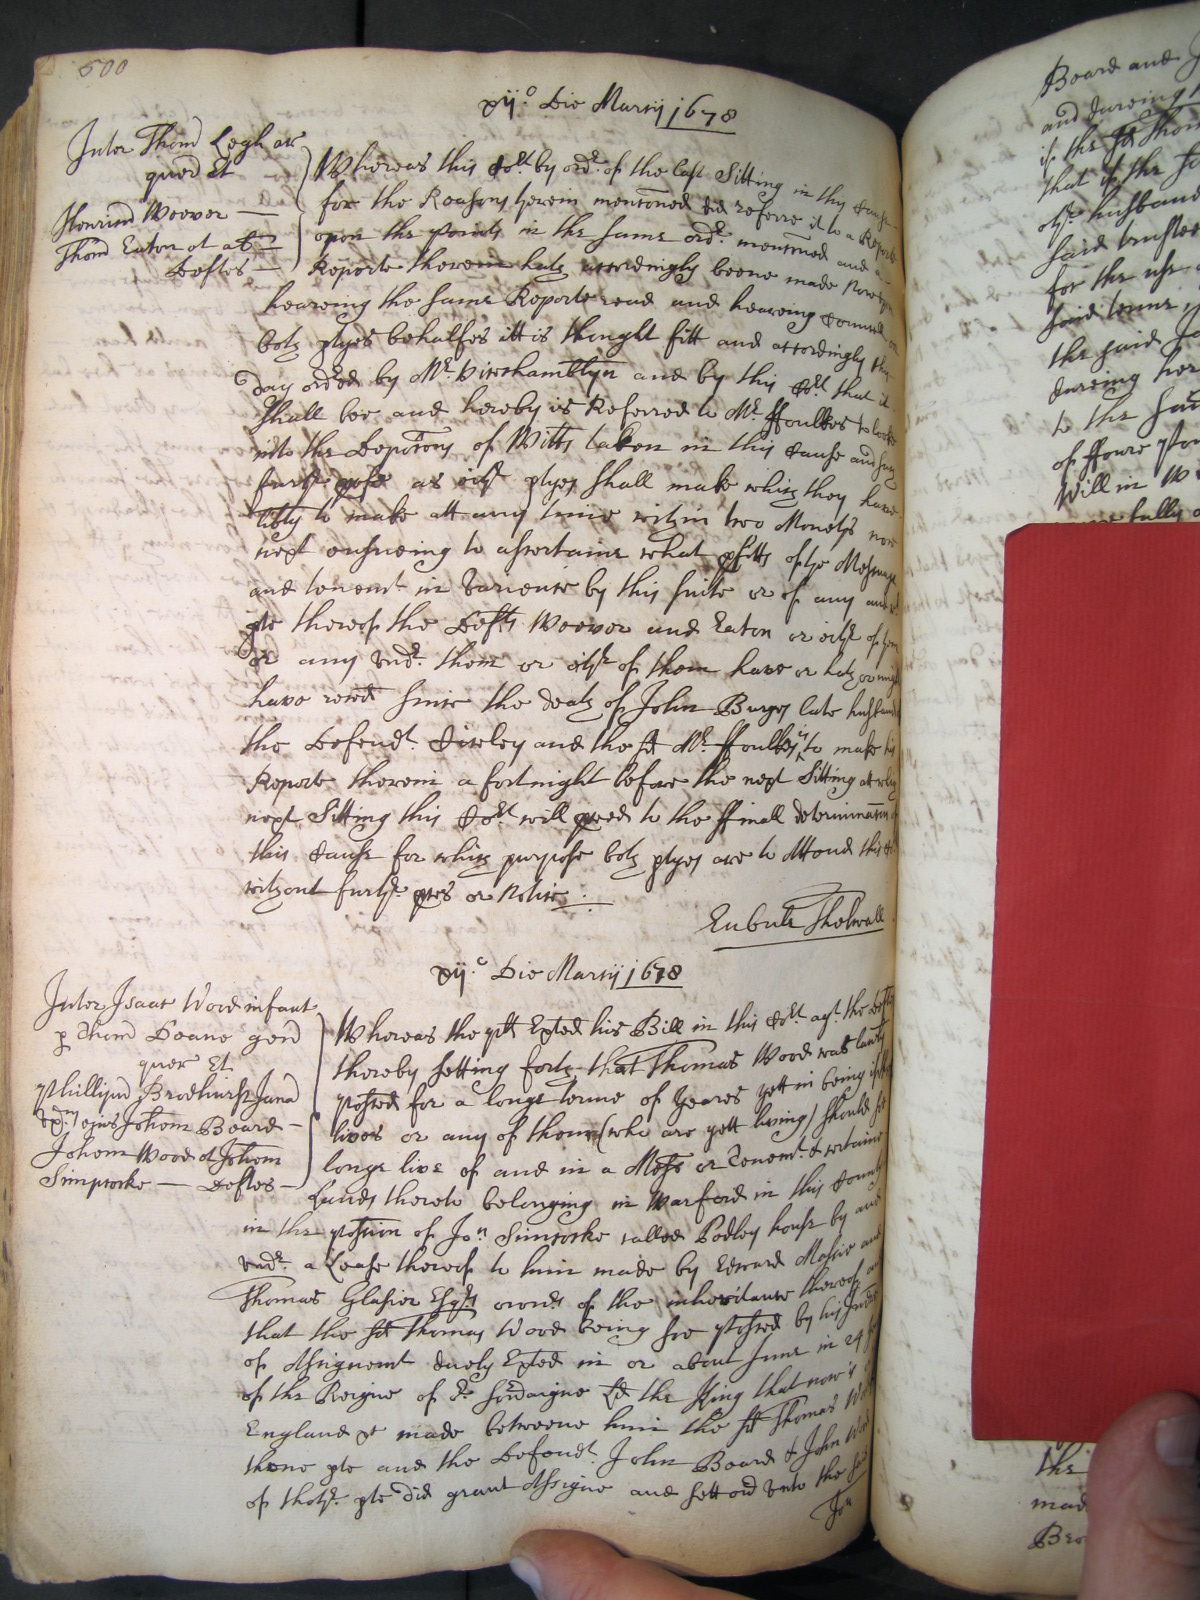 600
xij.o Die Martij 1678
Inter Thom Legh ar
quer Et
Henricu Weever —
Thom Eaton et al —
Deftes —
Whereas this Cort by ordr. of the last Sitting in this Cause
for the Reasons herein mentoned did referre it to a Reporte
upon the points in the same ordr. mentoned and a
Reporte therein hath accordingly beene made Now upon
heareing the same Reporte read and heareing Councell on
both ptyes behalfes itt is thought fitt and accordingly this
day ordred by Mr. Vicechamblyn and by this Cort. that it
shall bee and hereby is Referred to Mr. ffoulkes to looke
into the Deposicons of Witts taken in this Cause and such
furthr. profe as eithr ptyes shall make which they have
libty to make att any time within two Moneths now
next ensueing to ascertaine what pfitts of the Messuage
and tenemt. in variance by this suite or of any
pte thereof the Defts Weever and Eaton or eithr of them
or any undr. them or eithr of them have or hath or might
have reced since the death of John Burges late husband
the Defendt. Siveley and the sd Mr. ffoulkes is to make his
Reporte therein a fortnight before the next Sitting att which
next Sitting this Cort. will pceed to the ffinall determinacon of
this Cause for which purpose both ptyes are to Attend this Cort
without furthr. pces or Notice
Eubule Thelwall
xij.o Die Martij 1678
Inter Isaac Wood infant
p Thom Deane gen
quer Et
Phillipu Brodhurst Jana
ux. ejus Johem Board —
Johem Wood et Johem
Simcocke — Deftes —
Whereas the plt Exted his Bill in this Cort. agt. the Defts
thereby setting forth that Thomas Wood was lawfly
possed for a longe terme of yeares yett in being if
lives or any of them (who are yett living) should soe
longe live of and in a Messe or Tenemt. & certaine
Lands thereto belonging in Warford in this County
in the possion of Jon Simcocke called Podley house by and
undr. a Lease thereof to him made by Edward Massie and
Thomas Glasior Esqrs ownrs of the inheritance thereof and
that the sd Thomas Wood being soe possed by his Indre
of Assignemt duely Exted in or about June in 24
of the Reigne of or. soveraigne Ld the King that now is of
England &c made betweene him the sd Thomas Wood
thone pte and the Defendt. John Board & John Wood
of thothr. pte did grant Assigne and sett ovr unto the said
Jon
Board and
and dureing
if the sd Thom
that if the
husband
said trustees
for the use
said terme
the said
dureing her
to the said
of ffoure
Will in
fully
the
made
Bro